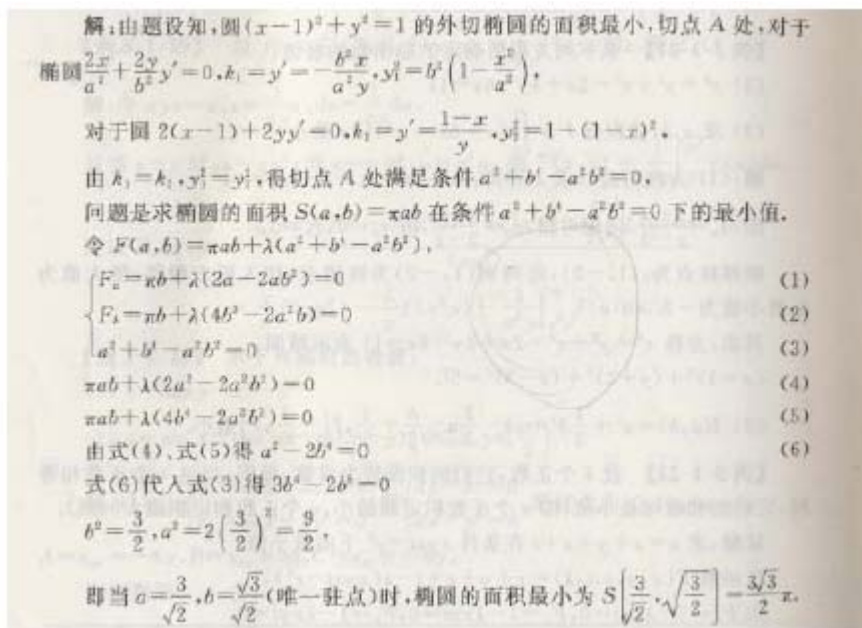 解:由题设知,圆(x-1)²+y²=1的外切椭圆的面积最小,切点A处,对于
椭圆 2x/a²+2y/b² y′=0,k₁=y′=-b²x/a²y,y₁²=b²(1-x²/a²),
对于圆2(x-1)+2yy′=0,k₂=y′=(1-x)/y,y₂²=1-(1-x)²,
由k₁=k₂,y₁²=y₂²,得切点A处满足条件a²+b⁴-a²b²=0,
问题是求椭圆的面积S(a,b)=πab在条件a²+b⁴-a²b²=0下的最小值.
令F(a,b)=πab+λ(a²+b⁴-a²b²),
Fₐ=πb+λ(2a-2ab²)=0 (1)
F_b=πb+λ(4b³-2a²b)=0 (2)
a²+b⁴-a²b²=0 (3)
πab+λ(2a²-2a²b²)=0 (4)
πab+λ(4b⁴-2a²b²)=0 (5)
由式(4)、式(5)得a²-2b⁴=0 (6)
式(6)代入式(3)得3b⁴-2b⁶=0
b²=3/2,a²=2(3/2)²=9/2,
即当a=3/√2,b=√3/√2(唯一驻点)时,椭圆的面积最小为S[3/√2,√(3/2)]=3√3/2 π.